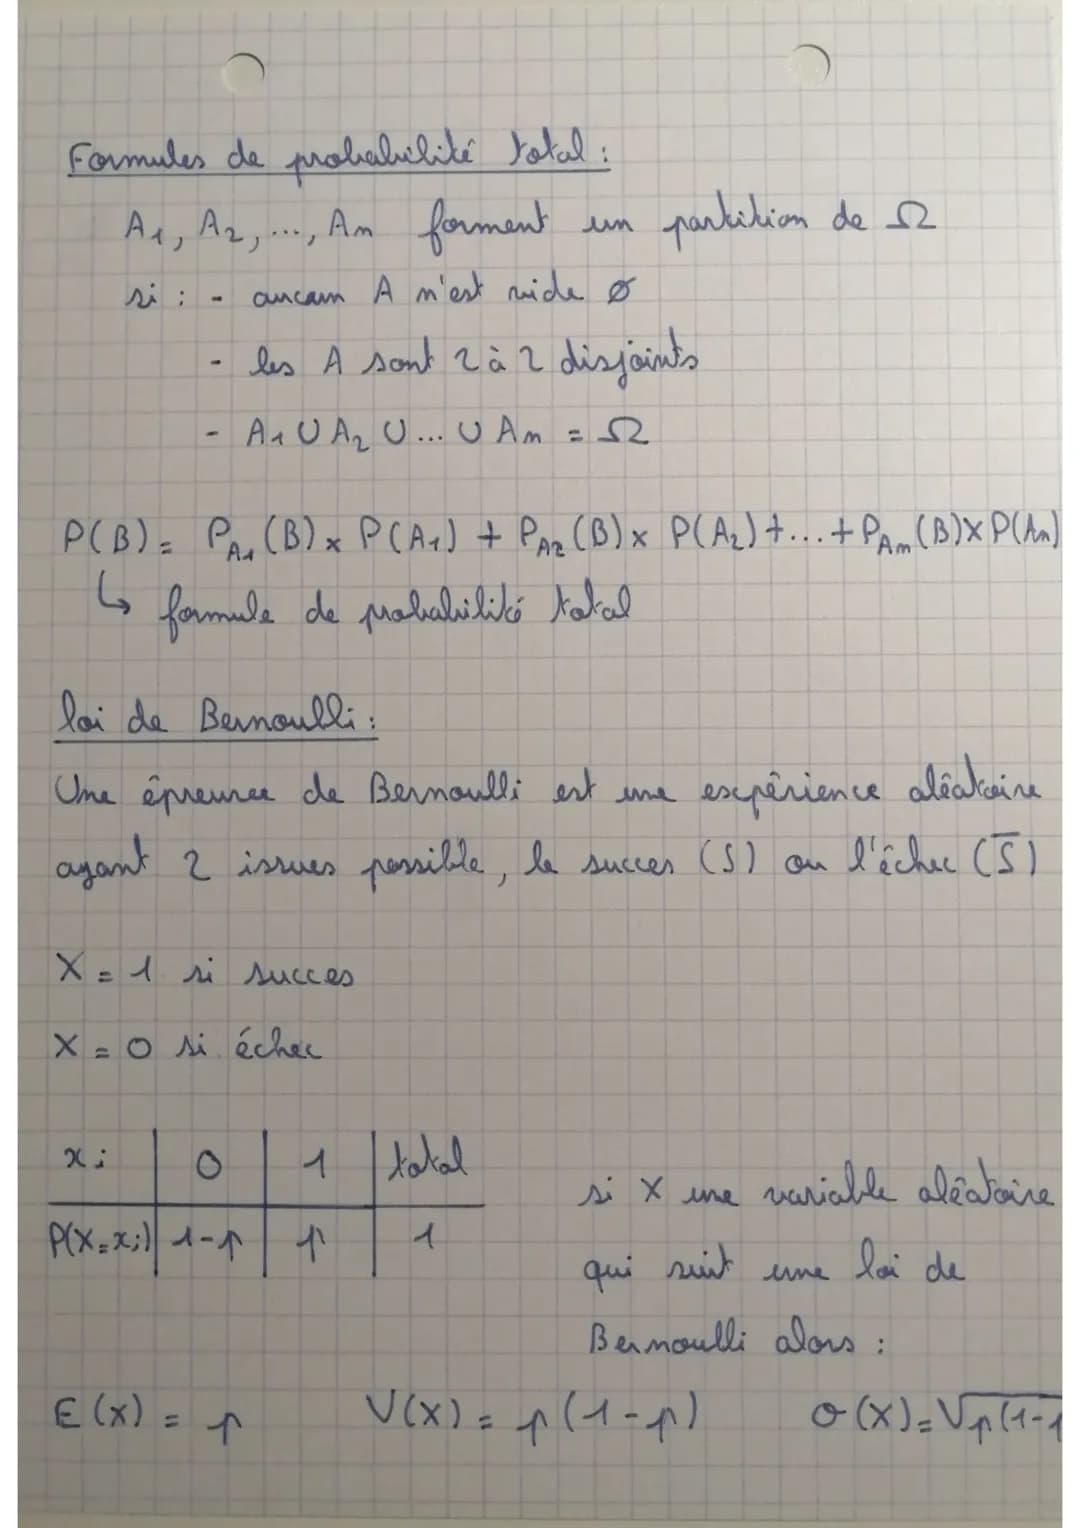 Formules de probabilité total :
A1, A2, ..., An forment un partition de Ω
si : - aucun A n'est vide ∅
- les A sont 2 à 2 disjoints
- A1 ∪ A2 ∪ ... ∪ An = Ω
P(B) = P_A1(B) × P(A1) + P_A2(B) × P(A2) + ... + P_An(B) × P(An)
↳ formule de probabilité total
loi de Bernoulli :
Une épreuve de Bernoulli est une expérience aléatoire
ayant 2 issues possible, le succes (S) ou l'échec (S̅)
X = 1 si succes
X = 0 si échec
xi | 0 | 1 | total
P(X=xi) | 1-p | p | 1
si X une variable aléatoire
qui suit une loi de
Bernoulli alors :
E(X) = p V(X) = p(1-p) σ(X) = √p(1-